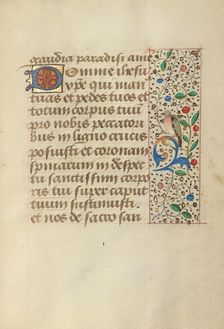 gaudia paradisi ame
Domine ihesu
xpe qui man
tuas et pedes tuos et
totum corpus tuū
pro nobis peccatori
bus in ligno crucis
posuisti et coronam
spinarum in despec
tu sanctissimi corpo
ris tui super caput
tuum sustinuisti.
et nos de sacro san